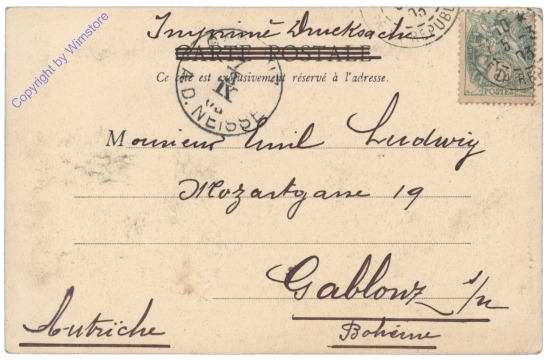 Imprimé Drucksache
CARTE POSTALE
Ce côté est exclusivement réservé à l'adresse.
A.D. NEISSE
Monsieur Emil Ludwig
Mozartgasse 19
Gablonz s/n
Bohême
Autriche
POSTES
Copyright by Wimstore